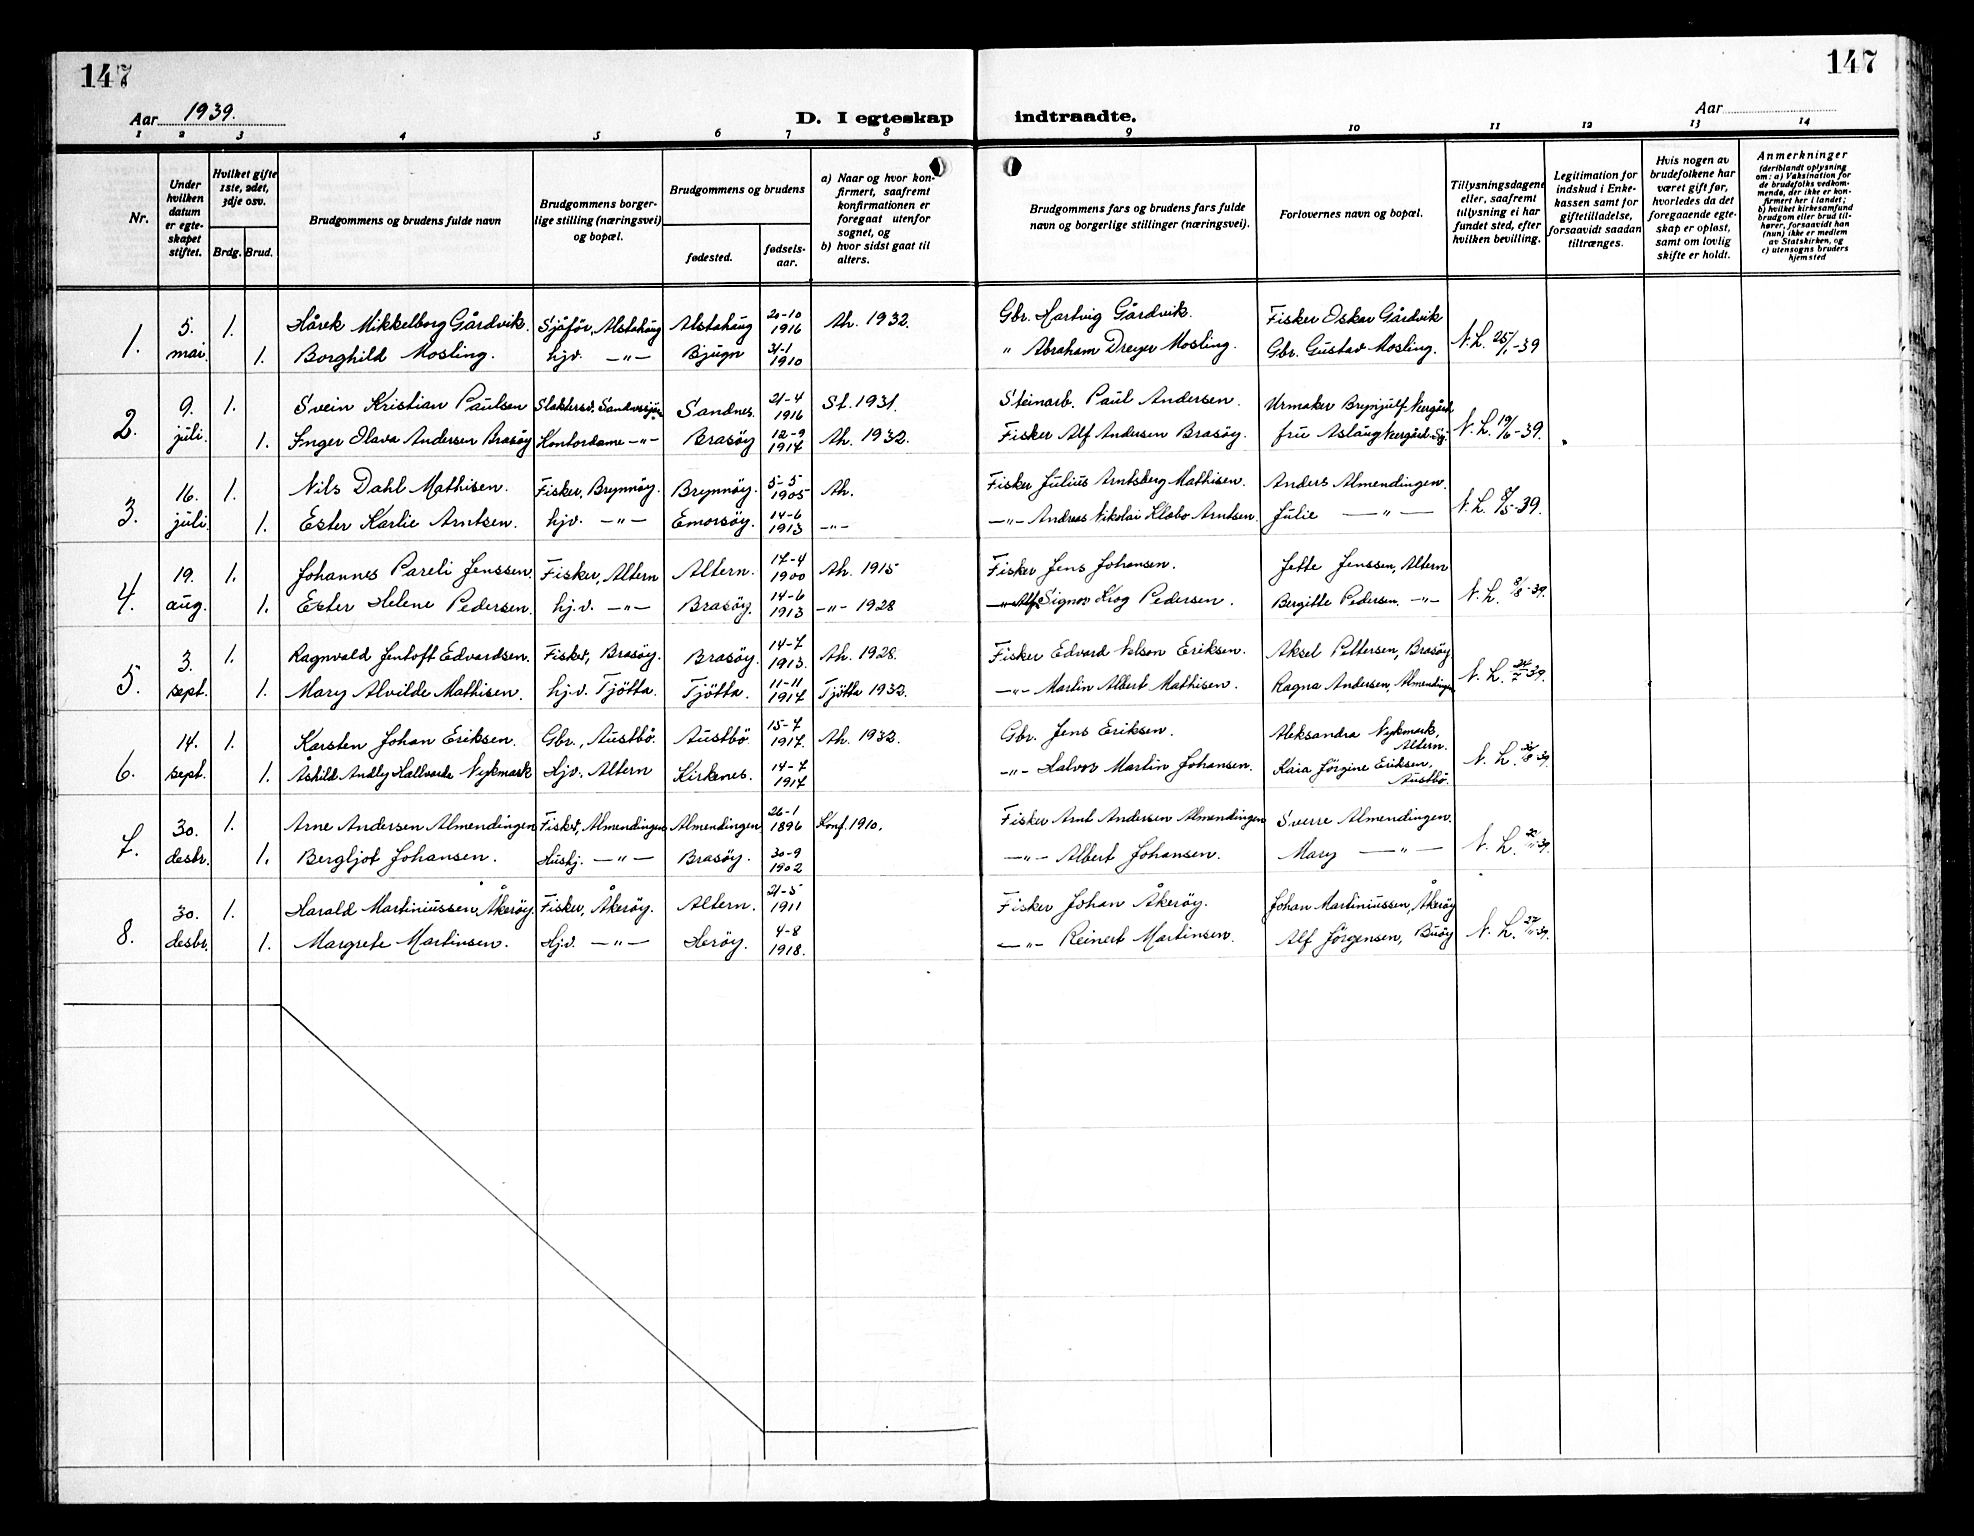 147
147
Aar 1939.
D. I egteskap indtraadte.
Aar
1 2 3 4 5 6 7 8 9 10 11 12 13 14
Nr.
Under hvilken datum er egteskapet stiftet.
Hvilket gifte 1ste, 2det, 3dje osv.
Brdg. Brud.
Brudgommens og brudens fulde navn
Brudgommens borgerlige stilling (næringsvei) og bopæl.
Brudgommens og brudens
fødested.
fødselsaar.
a) Naar og hvor konfirmert, saafremt konfirmationen er foregaat utenfor sognet, og
b) hvor sidst gaat til alters.
Brudgommens fars og brudens fars fulde navn og borgerlige stillinger (næringsvei).
Forlovernes navn og bopæl.
Tillysningsdagene eller, saafremt tillysning ei har fundet sted, efter hvilken bevilling.
Legitimation for indskud i Enkekassen samt for giftetilladelse, forsaavidt saadan tiltrænges.
Hvis nogen av brudefolkene har været gift før, hvorledes da det foregaaende egteskap er opløst, samt om lovlig skifte er holdt.
Anmerkninger
(deriblandt oplysning om: a) Vaksination for de brudefolks vedkommende, der ikke er konfirmert her i landet; b) hvilket kirkesamfund brudgom eller brud tilhører, forsaavidt han (hun) ikke er medlem av Statskirken, og c) utensogns bruders hjemsted
1. 5. mai. 1. Hårek Mikkelborg Gårdvik. Sjåfør, Alstahaug Alstahaug 20-10 1916 Ah. 1932. Gbr. Hartvig Gårdvik. Fisker Oskar Gårdvik
1. Borghild Mosling. hjv. —"— Bjugn 31-1 1910 " Abraham Dreyer Mosling. Gbr. Gustav Mosling. N. L. 25/1-39
2. 9. juli. 1. Svein Kristian Paulsen Sandnes. 21-4 1916 St. 1931. Steinarb. Paul Andersen. Urmaker Brynjulf
1. Inger Olava Andersen Brasöy Kontordame —"— Brasöy 12-9 1914 Ah. 1932. Fisker Alf Andersen Brasöy. fru Aslaug N. L. 19/6-39.
3. 16. juli. 1. Nils Dahl Mathisen. Fisker, Brynnöy. Brynnöy. 5-5 1905 Ah. Fisker Julius Arntsberg Mathisen. Anders Almendingen.
1. Ester Karlie Arntsen. hjv. —"— Emorsöy. 14-6 1913 —"— —"— Andreas Nikolai Klabo Arntsen. Julie —"— N. L. 9/5-39.
4. 19. aug. 1. Johannes Pareli Jenssen. Fisker, Altern Altern. 17-4 1900 Ah. 1915 Fisker Jens Johansen. Jette Jenssen, Altern
1. Ester Helene Pedersen. hj.v. —"— Brasöy. 14-6 1913 —"— 1928 —"— Signor Krog Pedersen. Bergitte Pedersen. —"— N. L. 8/8-39.
5. 3. sept. 1. Ragnvald Jentoft Edvardsen. Fisker, Brasöy. Brasöy. 14-7 1913. Ah. 1928. Fisker Edvard Nelson Eriksen. Aksel Pettersen, Brasöy
1. Mary Alvilde Mathisen. hj.v. Tjötta. Tjötta. 11-11 1914 Tjötta 1932. —"— Martin Albert Mathisen. Ragna Andersen, Almendingen N. L. 24/7-39.
6. 14. sept. 1. Karsten Johan Eriksen. Gbr., Austbö. Austbö 15-7 1917. Ah. 1932. Gbr. Jens Eriksen. Aleksandra Nykmark, Altern.
1. Åshild Andly Hallvarda Nykmark Hjv. Altern Kirkenes. 14-7 1914 —"— Halvor Martin Johansen. Kaia Jörgine Eriksen, Austbö. N. L. 8-39.
7. 30. desbr. 1. Arne Andersen Almendingen Fisker, Almendingen Almendingen 26-1 1896 Konf. 1910. Fisker Arnt Andersen Almendingen Sverre Almendingen.
1. Bergljot Johansen. Hushj. —"— Brasöy. 30-9 1902 —"— Albert Johansen. Mary —"— N. L. 30/11-39.
8. 30. desbr. 1. Harald Martiniussen Åkeröy. Fisker, Åkeröy. Altern. 21-5 1911 Fisker Johan Åkeröy. Johan Martiniussen, Åkeröy
1. Margrete Martinsen. Hjv. —"— Heröy. 4-8 1918. —"— Reinert Martinsen. Alf Jörgensen, Buöy N. L. 27/11-39.